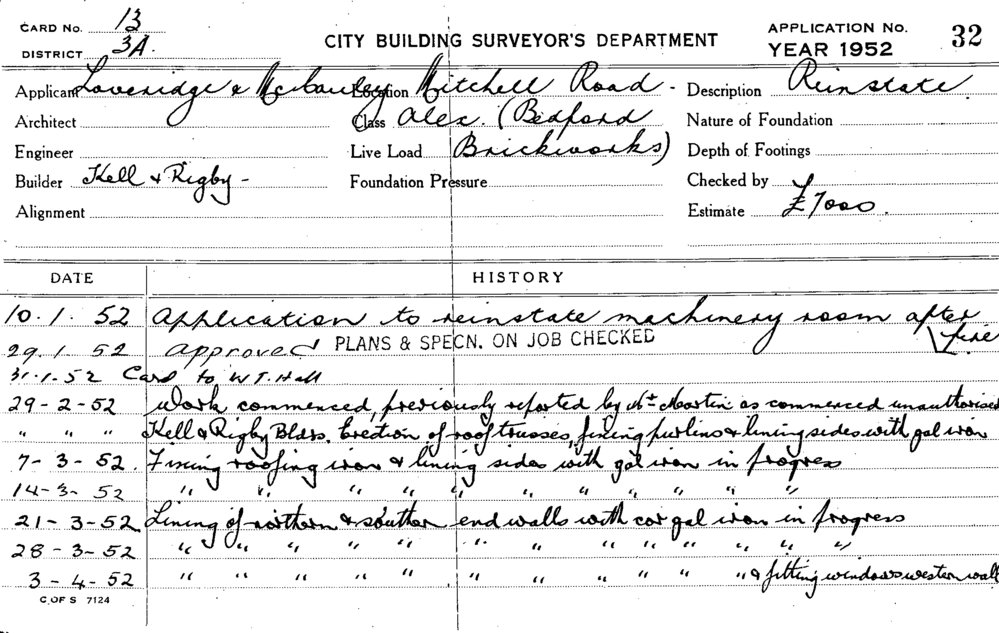 CARD No. 13
DISTRICT 3A.
CITY BUILDING SURVEYOR'S DEPARTMENT
APPLICATION No. 32
YEAR 1952
Applicant Loveridge & Location Mitchell Road - Description Reinstate
Architect Class Alex. (Bedford Nature of Foundation
Engineer Live Load Brickworks) Depth of Footings
Builder Kell & Rigby - Foundation Pressure Checked by
Alignment Estimate £7000.
DATE HISTORY
10. 1. 52 Application to reinstate machinery room after fire
29. 1 52 Approved PLANS & SPECN. ON JOB CHECKED
31.1.52 Card to W T. Hall
29-2-52 Work commenced, previously reported by Mr Martin as commenced unauthorised
" " " Kell & Rigby Bldrs. Erection of roof trusses, fixing purlins & lining sides with gal iron
7-3-52. Fixing roofing iron & lining sides with gal iron in progress
14-3-52 " " " " " " " " " " "
21-3-52 Lining of northern & southern end walls with cor gal iron in progress
28-3-52 " " " " " " " " " " " " "
3-4-52 " " " " " " " " " " " " & fitting windows western wall
C OF S 7124